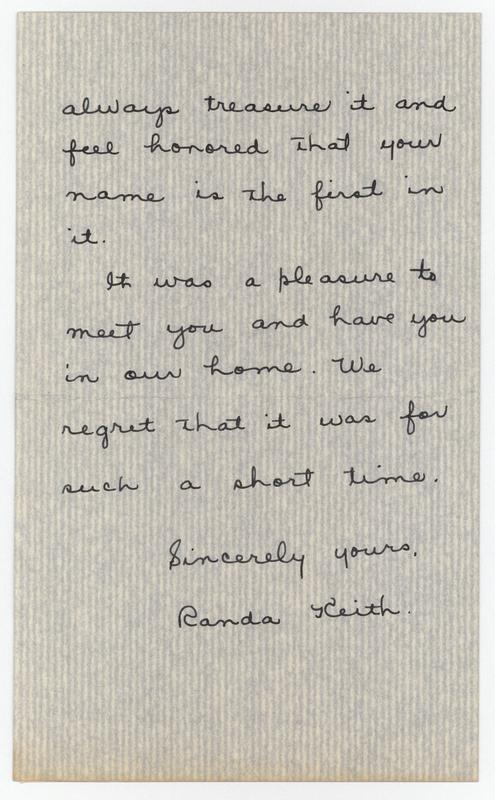 always treasure it and
feel honored that your
name is the first in
it.
It was a pleasure to
meet you and have you
in our home. We
regret that it was for
such a short time.
Sincerely yours,
Randa Keith.